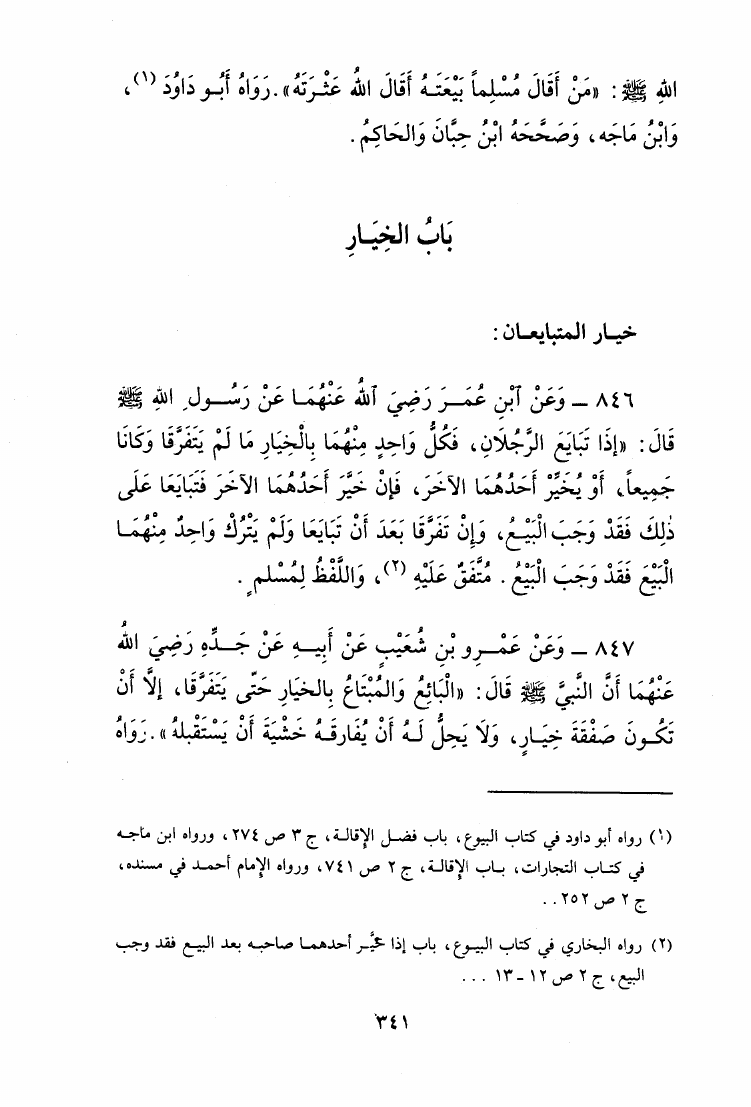 اللهِ ﷺ: «مَنْ أَقَالَ مُسْلِماً بَيْعَتَـهُ أَقَالَ اللهُ عَثْـرَتَهُ». رَوَاهُ أَبُـو دَاوُدَ (١)،
وَابْنُ مَاجَه، وَصَحَّحَهُ ابْنُ حِبَّانَ وَالحَاكِمُ.
بَابُ الخِيَـارِ
خيـار المتبايعـان:
٨٤٦ ـ وَعَنْ ابْنِ عُمَـرَ رَضِيَ اللهُ عَنْهُمَـا عَنْ رَسُـولِ اللهِ ﷺ
قَالَ: «إِذَا تَبَايَعَ الرَّجُلَانِ، فَكُلُّ وَاحِدٍ مِنْهُمَا بِالْخِيَارِ مَا لَمْ يَتَفَرَّقَا وَكَانَا
جَمِيعاً، أَوْ يُخَيِّرْ أَحَدُهُمَا الآخَرَ، فَإِنْ خَيَّرَ أَحَدُهُمَا الآخَرَ فَتَبَايَعَا عَلَى
ذٰلِكَ فَقَدْ وَجَبَ الْبَيْـعُ، وَإِنْ تَفَرَّقَا بَعْدَ أَنْ تَبَايَعَا وَلَمْ يَتْرُكْ وَاحِدٌ مِنْهُمَـا
الْبَيْعَ فَقَدْ وَجَبَ الْبَيْعُ. مُتَّفَقٌ عَلَيْهِ (٢)، وَاللَّفْظُ لِمُسْلِمٍ.
٨٤٧ ـ وَعَنْ عَمْـرِو بْنِ شُعَيْبٍ عَنْ أَبِيـهِ عَنْ جَـدِّهِ رَضِيَ اللهُ
عَنْهُمَا أَنَّ النَّبِيَّ ﷺ قَالَ: «الْبَائِعُ وَالمُبْتَاعُ بِالخِيَارِ حَتَّى يَتَفَرَّقَا، إِلاَّ أَنْ
تَكُـونَ صَفْقَةَ خِيَـارٍ، وَلَا يَحِلُّ لَـهُ أَنْ يُفَارِقَـهُ خَشْيَةَ أَنْ يَسْتَقْبِلهُ». رَوَاهُ
(١) رواه أبو داود في كتاب البيوع، باب فضـل الإقالـة، ج ٣ ص ٢٧٤، ورواه ابن ماجـه
في كتـاب التجارات، بـاب الإقالـة، ج ٢ ص ٧٤١، ورواه الإمام أحمـد في مسنده،
ج ٢ ص ٢٥٢..
(٢) رواه البخاري في كتاب البيـوع، باب إذا خيَّـر أحدهمـا صاحبـه بعد البيـع فقد وجب
البيع، ج ٢ ص ١٢ ـ ١٣ ...
٣٤١